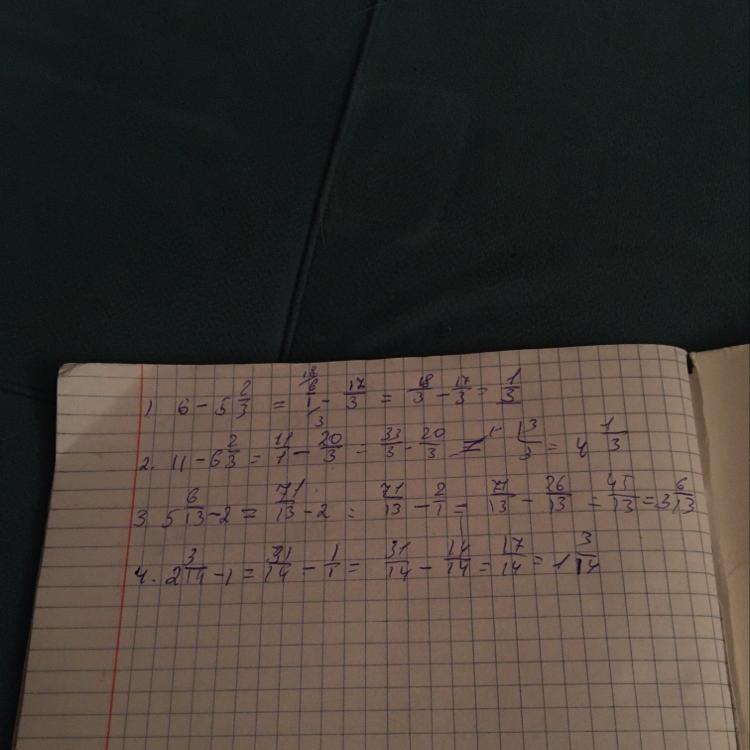 1) 6 - 5 2/3 = 6/1 - 17/3 = 18/3 - 17/3 = 1/3
2. 11 - 6 2/3 = 11/1 - 20/3 = 33/3 - 20/3 = 13/3 = 4 1/3
3 5 6/13 - 2 = 71/13 - 2 = 71/13 - 2/1 = 71/13 - 26/13 = 45/13 = 3 6/13
4. 2 3/14 - 1 = 31/14 - 1/1 = 31/14 - 14/14 = 17/14 = 1 3/14